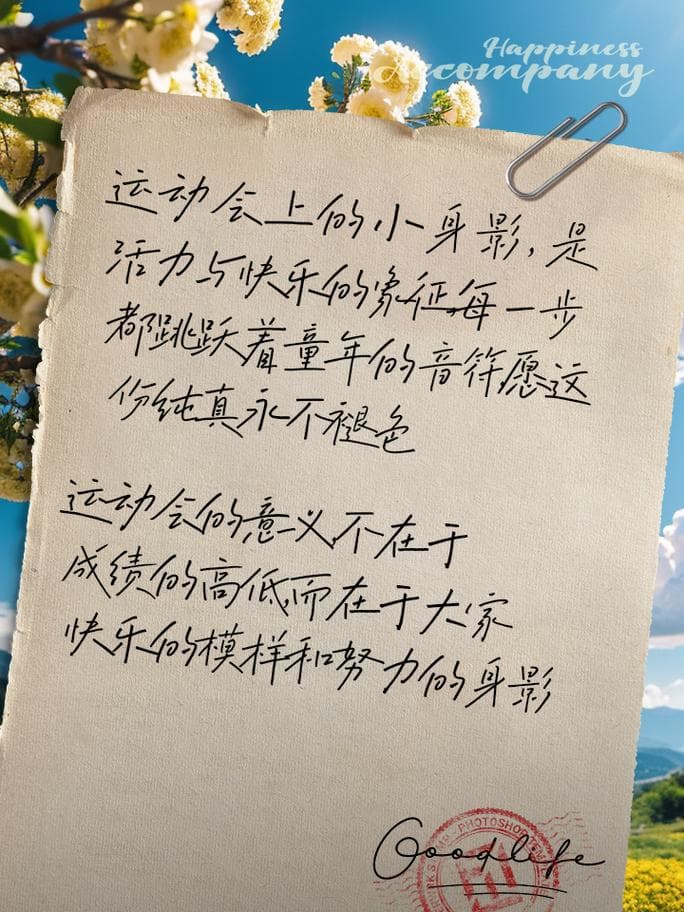 Happiness
Accompany
运动会上的小身影,是
活力与快乐的象征,每一步
都跳跃着童年的音符,愿这
份纯真永不褪色
运动会的意义,不在于
成绩的高低,而在于大家
快乐的模样和努力的身影
PHOTOSHOP
Goodlife